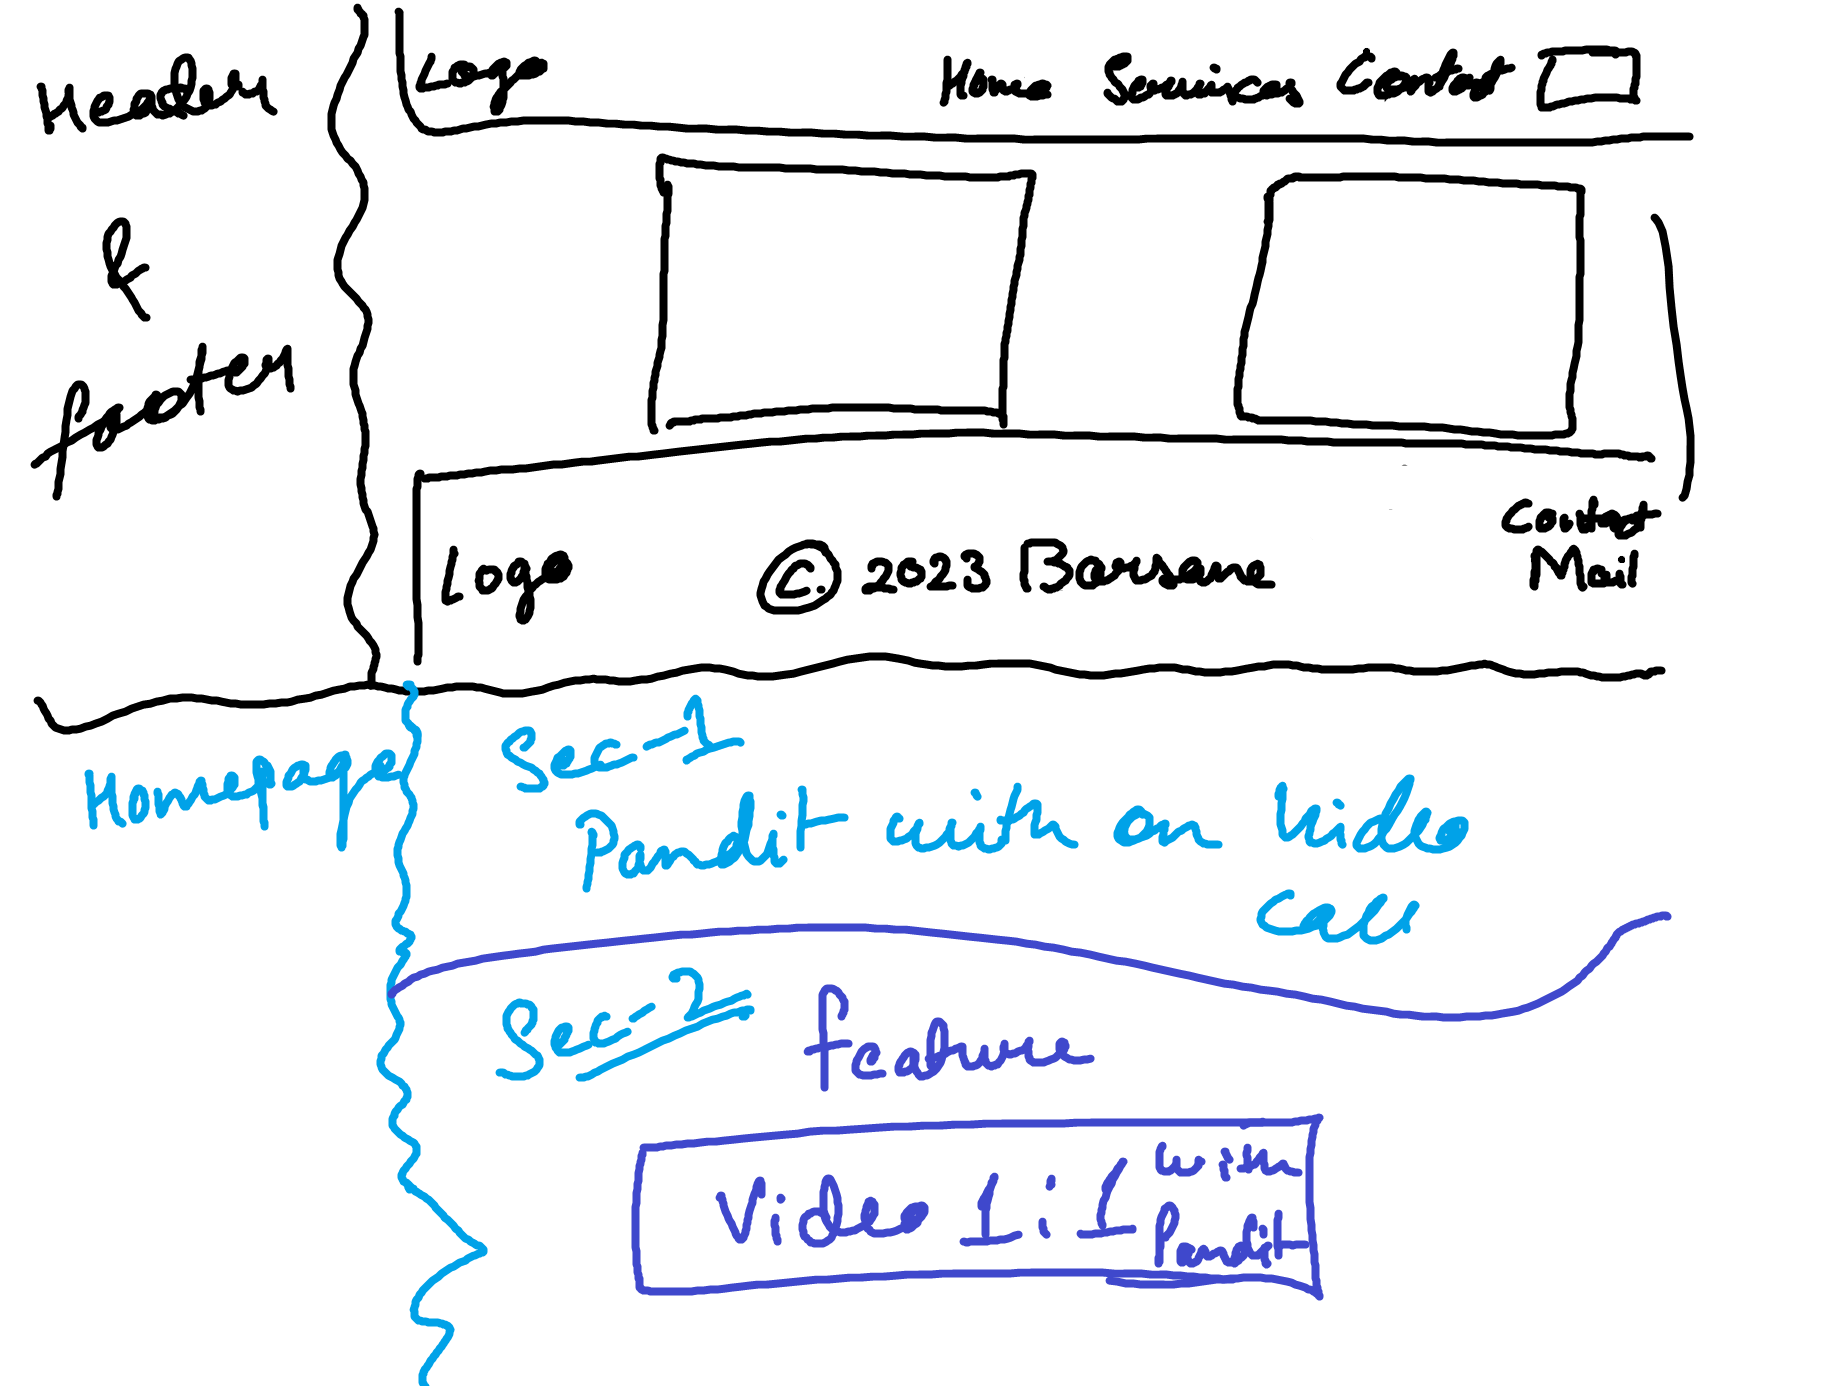 Header
&
footer
Logo Home Services Contact
Logo © 2023 Barsane Contact
Mail
Homepage
Sec-1
Pandit with on Video
Call
Sec-2 feature
Video 1:1 with
Pandit